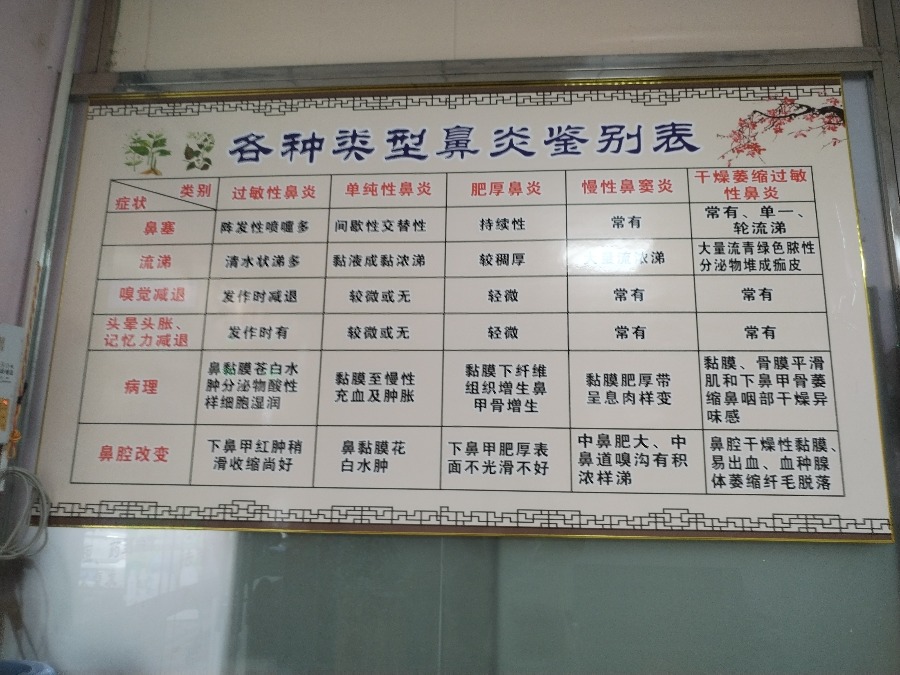 各种类型鼻炎鉴别表
类别
症状
过敏性鼻炎
单纯性鼻炎
肥厚鼻炎
慢性鼻窦炎
干燥萎缩过敏
性鼻炎
鼻塞
阵发性喷嚏多
间歇性交替性
持续性
常有
常有、单一、
轮流涕
流涕
清水状涕多
黏液成黏浓涕
较稠厚
大量流浓涕
大量流青绿色脓性
分泌物堆成痂皮
嗅觉减退
发作时减退
较微或无
轻微
常有
常有
头晕头胀、
记忆力减退
发作时有
较微或无
轻微
常有
常有
病理
鼻黏膜苍白水
肿分泌物酸性
样细胞湿润
黏膜至慢性
充血及肿胀
黏膜下纤维
组织增生鼻
甲骨增生
黏膜肥厚带
呈息肉样变
黏膜、骨膜平滑
肌和下鼻甲骨萎
缩鼻咽部干燥异
味感
鼻腔改变
下鼻甲红肿稍
滑收缩尚好
鼻黏膜花
白水肿
下鼻甲肥厚表
面不光滑不好
中鼻肥大、中
鼻道嗅沟有积
浓样涕
鼻腔干燥性黏膜、
易出血、血种腺
体萎缩纤毛脱落